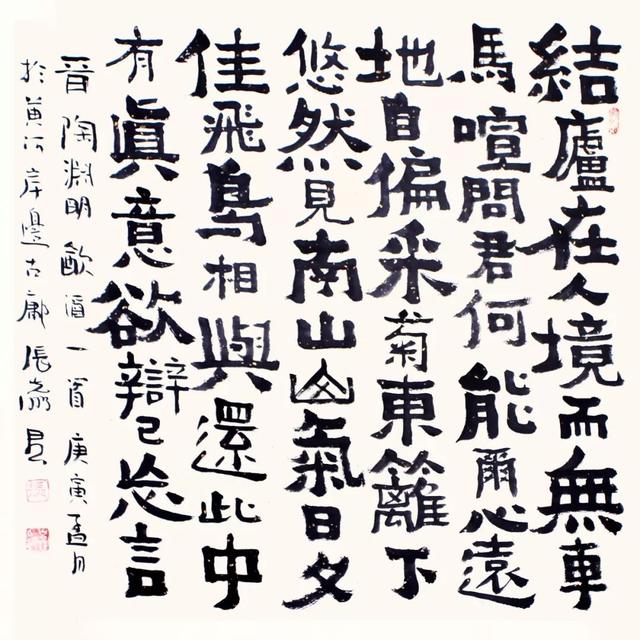 結廬在人境而無車
馬喧問君何能爾心遠
地自偏采菊東籬下
悠然見南山山氣日夕
佳飛鳥相與還此中
有眞意欲辯已忘言
晉陶淵明飲酒一首庚寅孟月
於黃河岸邊古張